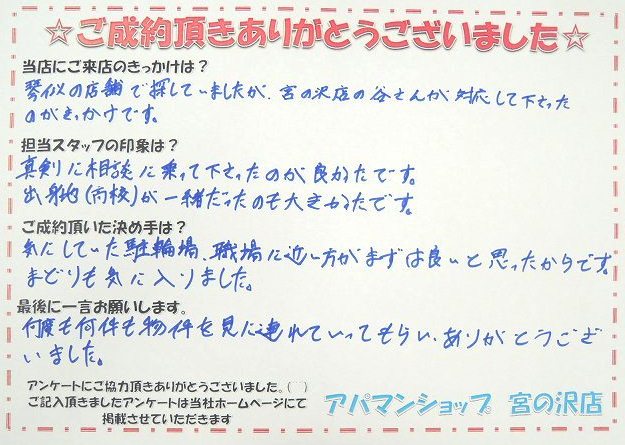 ☆ご成約頂きありがとうございました☆
当店にご来店のきっかけは？
琴似の店舗で探していましたが、宮の沢店の谷さんが対応して下さった
のがきっかけです。
担当スタッフの印象は？
真剣に相談に乗って下さったのが良かたです。
出身地(高校)が一緒だったのも大きかたです。
ご成約頂いた決め手は？
気にしていた駐輪場、職場に近い方がまずは良いと思ったからです。
まどりも気に入りました。
最後に一言お願いします。
何度も何件も物件を見に連れていってもらい、ありがとうござ
いました。
アンケートにご協力頂きありがとうございました。(
ご記入頂きましたアンケートは当社ホームページにて
掲載させていただきます
アパマンショップ 宮の沢店